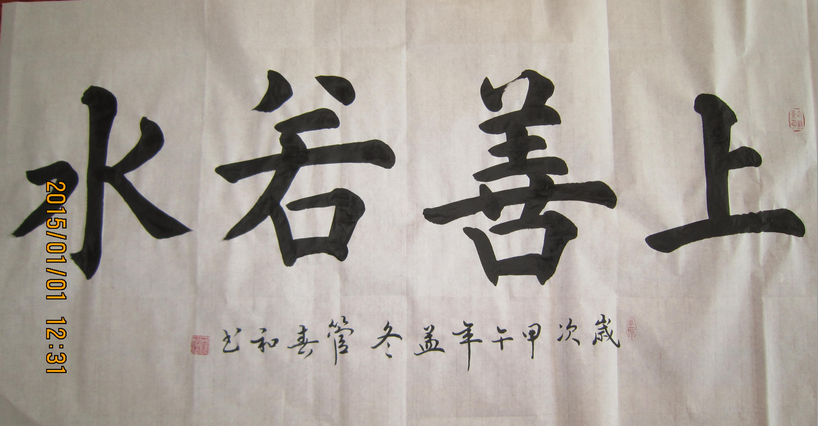 上善若水
歲次甲午年孟冬管春和书
2015/01/01 12:31